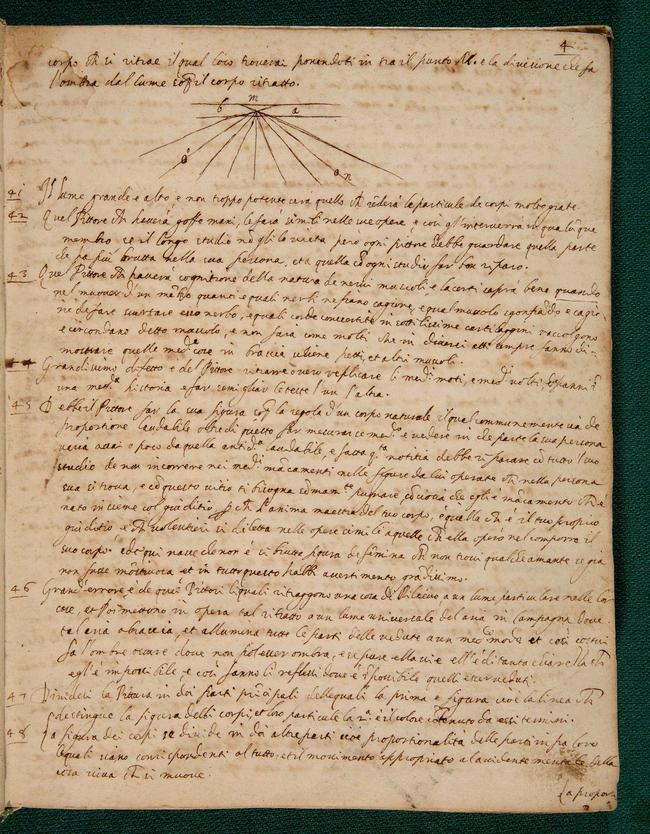 4
corpo ch si ritrae il qual loco troverai ponendoti in tra il punto M. e la divisione che fa
l'ombra dal lume sop.a il corpo ritratto.
m
b a
o n
41 Il lume grande e alto, e non troppo potente sarà quello ch renderà le particule de corpi molto grate.
42 Quel Pittore ch haverà goffe mani, le farà simili nelle sue opere, e così gl'interverrà in qualunque
membro se il longo studio non gli lo vieta però ogni pittore debbe guardare quella parte
che ha più brutta nella sua persona, et a quella con ogni studio far bon riparo.
43 Quel Pittore ch haverà cognitione della natura de nervi muscoli e lacerti saprà bene quando
nel muover d'un membro quanti e quali nervi ne siano cagione, e qual muscolo sgonfiando è cagio-
ne de far scortare esso nervo, e quali corde convertite in sottilissime cartilagini raccolgono
e circondano detto muscolo, e non farà come molti che in diversi atti sempre fanno di-
mostrare quelle med.me cose in braccia schiene petti, et altri muscoli.
44 Grandissimo difetto è del Pittore ritrarre overo replicare li med.mi moti, e med.mi volti e panni i.n
una med.ma historia e far somigliar le teste l'un l'altra.
45 Debbe il Pittore far la sua figura sop.a la regola d'un corpo naturale il qual communemente sia de
proportione laudabile oltre di questo far mesurar se med.mo e vedere in che parte la sua persona
varia assai o poco da quella antid.a laudabile, e fatta q.ta notitia debbe riparare con tutto l suo
studio de non incorrere nei med.mi mancamenti nelle figure da lui operate ch nella persona
sua si trova, e con questo vitio ti bisogna somam.te pugnare conciosia che egli è mancamento ch è
nato insieme col giuditio p ch l'anima maestra del tuo corpo, è quella ch è il tuo proprio
giuditio e ch volentieri si diletta nelle opere simile a quelle ch ella operò nel comporre il
suo corpo: e de qui nasce che non è sì brutta figura di femina ch non trovi qualche amante se già
non fusse mostruosa et in tutto questo habbi avertimento grandissimo.
46 Grand'errore è de quei Pittori li quali ritraggono una cosa di rilievo a un lume particulare nelle lor
case, et poi mettono in opera tal ritratto a un lume universale del aria in campagna dove
tal aria abraccia, et allumina tutte le parti delle vedute a un med.mo modo et così costui
fa l'ombre oscure dove non pol esser ombra, e se pure ella vi è ell'è di tanta chiarezza ch
egli è impossibile, e così fanno li reflessi dove è impossibile quelli esser veduti.
47 Dividesi la Pittura in doi parti principali delle quali la prima è figura cioè la linea ch
destingue la figura delli corpi, et loro particule la 2.a è il colore contenuto da essi termini.
48 La figura dei corpi se divide in doi altre parti cioè proportionalità delle parti in fra loro
le quali siano corrispondenti al tutto, et il movimento appropriato al accidente mentale della
cosa viva ch si muove.
La propor